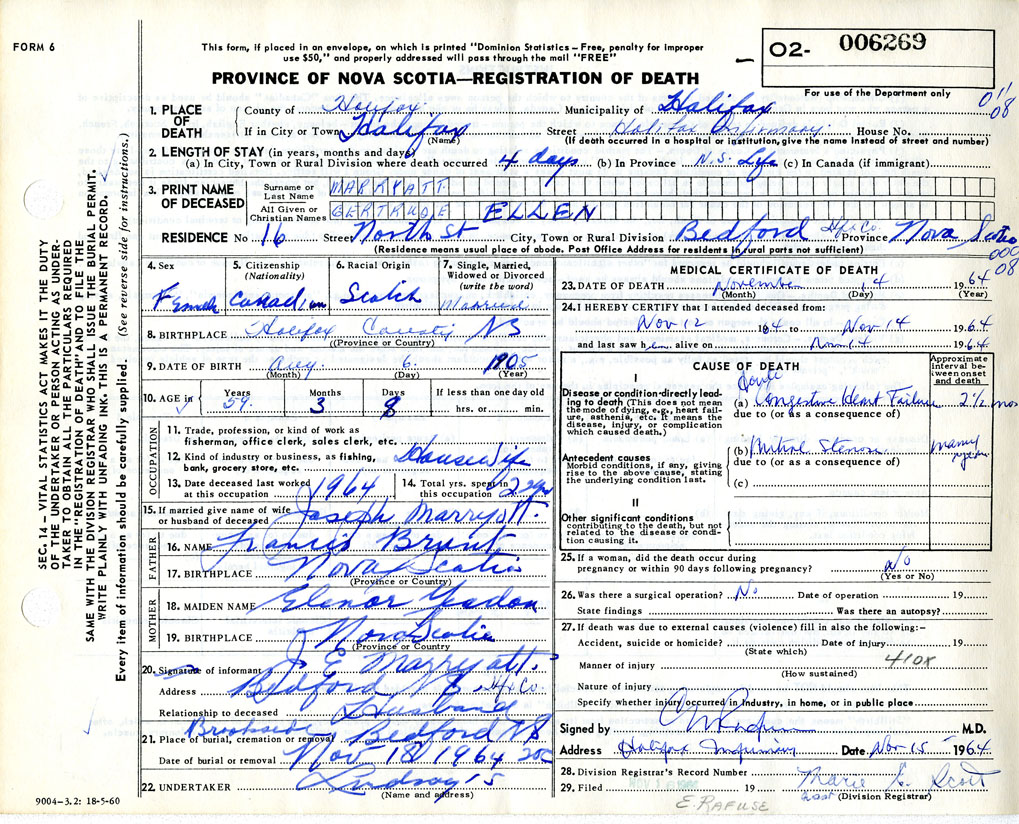 FORM 6
This form, if placed in an envelope, on which is printed "Dominion Statistics – Free, penalty for improper
use $50," and properly addressed will pass through the mail "FREE"
O2- 006269
For use of the Department only
PROVINCE OF NOVA SCOTIA—REGISTRATION OF DEATH
1. PLACE OF DEATH
County of Halifax Municipality of Halifax
If in City or Town Halifax Street Halifax House No.
(Name) (If death occurred in a hospital or institution, give the name instead of street and number)
2. LENGTH OF STAY (in years, months and days)
(a) In City, Town or Rural Division where death occurred 4 days (b) In Province N.S. Life (c) In Canada (if immigrant)
3. PRINT NAME OF DECEASED
Surname or Last Name MARRYATT
All Given or Christian Names GERTRUDE ELLEN
RESIDENCE No 16 Street North St City, Town or Rural Division Bedford Hfx Co. Province Nova Scotia
(Residence means usual place of abode. Post Office Address for residents in rural parts not sufficient)
011
08
000
08
4. Sex Female
5. Citizenship (Nationality) Canadian
6. Racial Origin Scotch
7. Single, Married, Widowed or Divorced (write the word) Married
8. BIRTHPLACE Halifax County NS
(Province or Country)
9. DATE OF BIRTH Aug. 6 1905
(Month) (Day) (Year)
10. AGE in Years 59 Months 3 Days 8 If less than one day old hrs. or min.
OCCUPATION
11. Trade, profession, or kind of work as fisherman, office clerk, sales clerk, etc.
12. Kind of industry or business, as fishing, bank, grocery store, etc. Housewife
13. Date deceased last worked at this occupation 1964
14. Total yrs. spent in this occupation
15. If married give name of wife or husband of deceased Joseph Marryatt.
FATHER
16. NAME Francis Brunt
17. BIRTHPLACE Nova Scotia
(Province or Country)
MOTHER
18. MAIDEN NAME Elenor Yeadon
19. BIRTHPLACE Nova Scotia
(Province or Country
20. Signature of informant J E Marryatt.
Address Bedford N S Hfx Co.
Relationship to deceased Husband
21. Place of burial, cremation or removal Brookside Bedford NS
Date of burial or removal Nov. 18 1964
22. UNDERTAKER Lindsay's
(Name and address)
9004–3.2: 18-5-60
MEDICAL CERTIFICATE OF DEATH
23. DATE OF DEATH November 14 1964
(Month) (Day) (Year)
24. I HEREBY CERTIFY that I attended deceased from:
Nov 12 1964 to Nov 14 1964
and last saw her alive on Nov 14 1964
CAUSE OF DEATH
Approximate interval between onset and death
I
Disease or condition directly leading to death (This does not mean the mode of dying, e.g., heart failure, asthenia, etc. It means the disease, injury, or complication which caused death.)
(a) Congestive Heart Failure 2½ mos
due to (or as a consequence of)
Antecedent causes
Morbid conditions, if any, giving rise to the above cause, stating the underlying condition last.
(b) Mitral Stenosis many years
due to (or as a consequence of)
(c)
II
Other significant conditions
contributing to the death, but not related to the disease or condition causing it.
25. If a woman, did the death occur during pregnancy or within 90 days following pregnancy? No
(Yes or No)
26. Was there a surgical operation? No Date of operation 19
State findings Was there an autopsy?
27. If death was due to external causes (violence) fill in also the following:–
Accident, suicide or homicide? Date of injury 19
(State which)
410X
Manner of injury
(How sustained)
Nature of injury
Specify whether injury occurred in industry, in home, or in public place
Signed by M.D.
Address Halifax Infirmary Date Nov 15 1964
28. Division Registrar's Record Number
29. Filed 19 Marie E. Scott
(Division Registrar)
E. RAFUSE
SEC. 14– VITAL STATISTICS ACT MAKES IT THE DUTY
OF THE UNDERTAKER OR PERSON ACTING AS UNDERTAKER
TO OBTAIN ALL THE PARTICULARS REQUIRED
IN THE "REGISTRATION OF DEATH" AND TO FILE THE
SAME WITH THE DIVISION REGISTRAR WHO SHALL ISSUE THE BURIAL PERMIT.
WRITE PLAINLY WITH UNFADING INK. THIS IS A PERMANENT RECORD.
Every item of information should be carefully supplied. (See reverse side for instructions.)